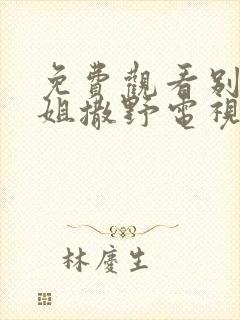 免費觀看別
姐撒野電視
林慶生